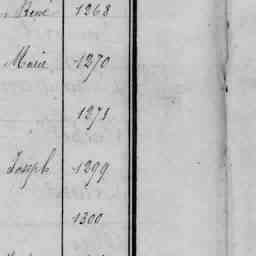 René 1268
Marie 1270
1271
Joseph 1299
1300